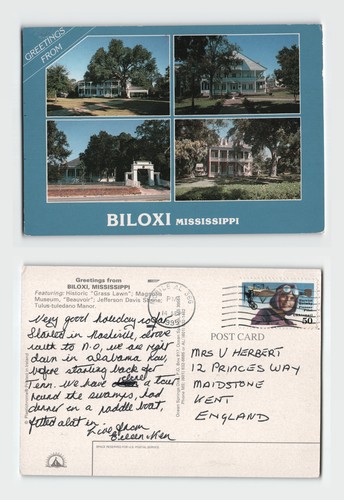 GREETINGS
FROM
BILOXI MISSISSIPPI
Greetings from
BILOXI, MISSISSIPPI
Featuring: Historic "Grass Lawn"; Magnolia
Museum, "Beauvoir"; Jefferson Davis Shrine;
Tullis-toledano Manor.
Very good holiday
Started in Nashville, drove
south to N.O, we are right
down in Alabama now,
before starting back for
Tenn. We have done a tour
round the swamps, had
dinner on a paddle boat,
fitted alot in
Love from
Eileen + Ken
AL 366
PM
1999
50
POST CARD
MRS V HERBERT
12 PRINCES WAY
MAIDSTONE
KENT
ENGLAND